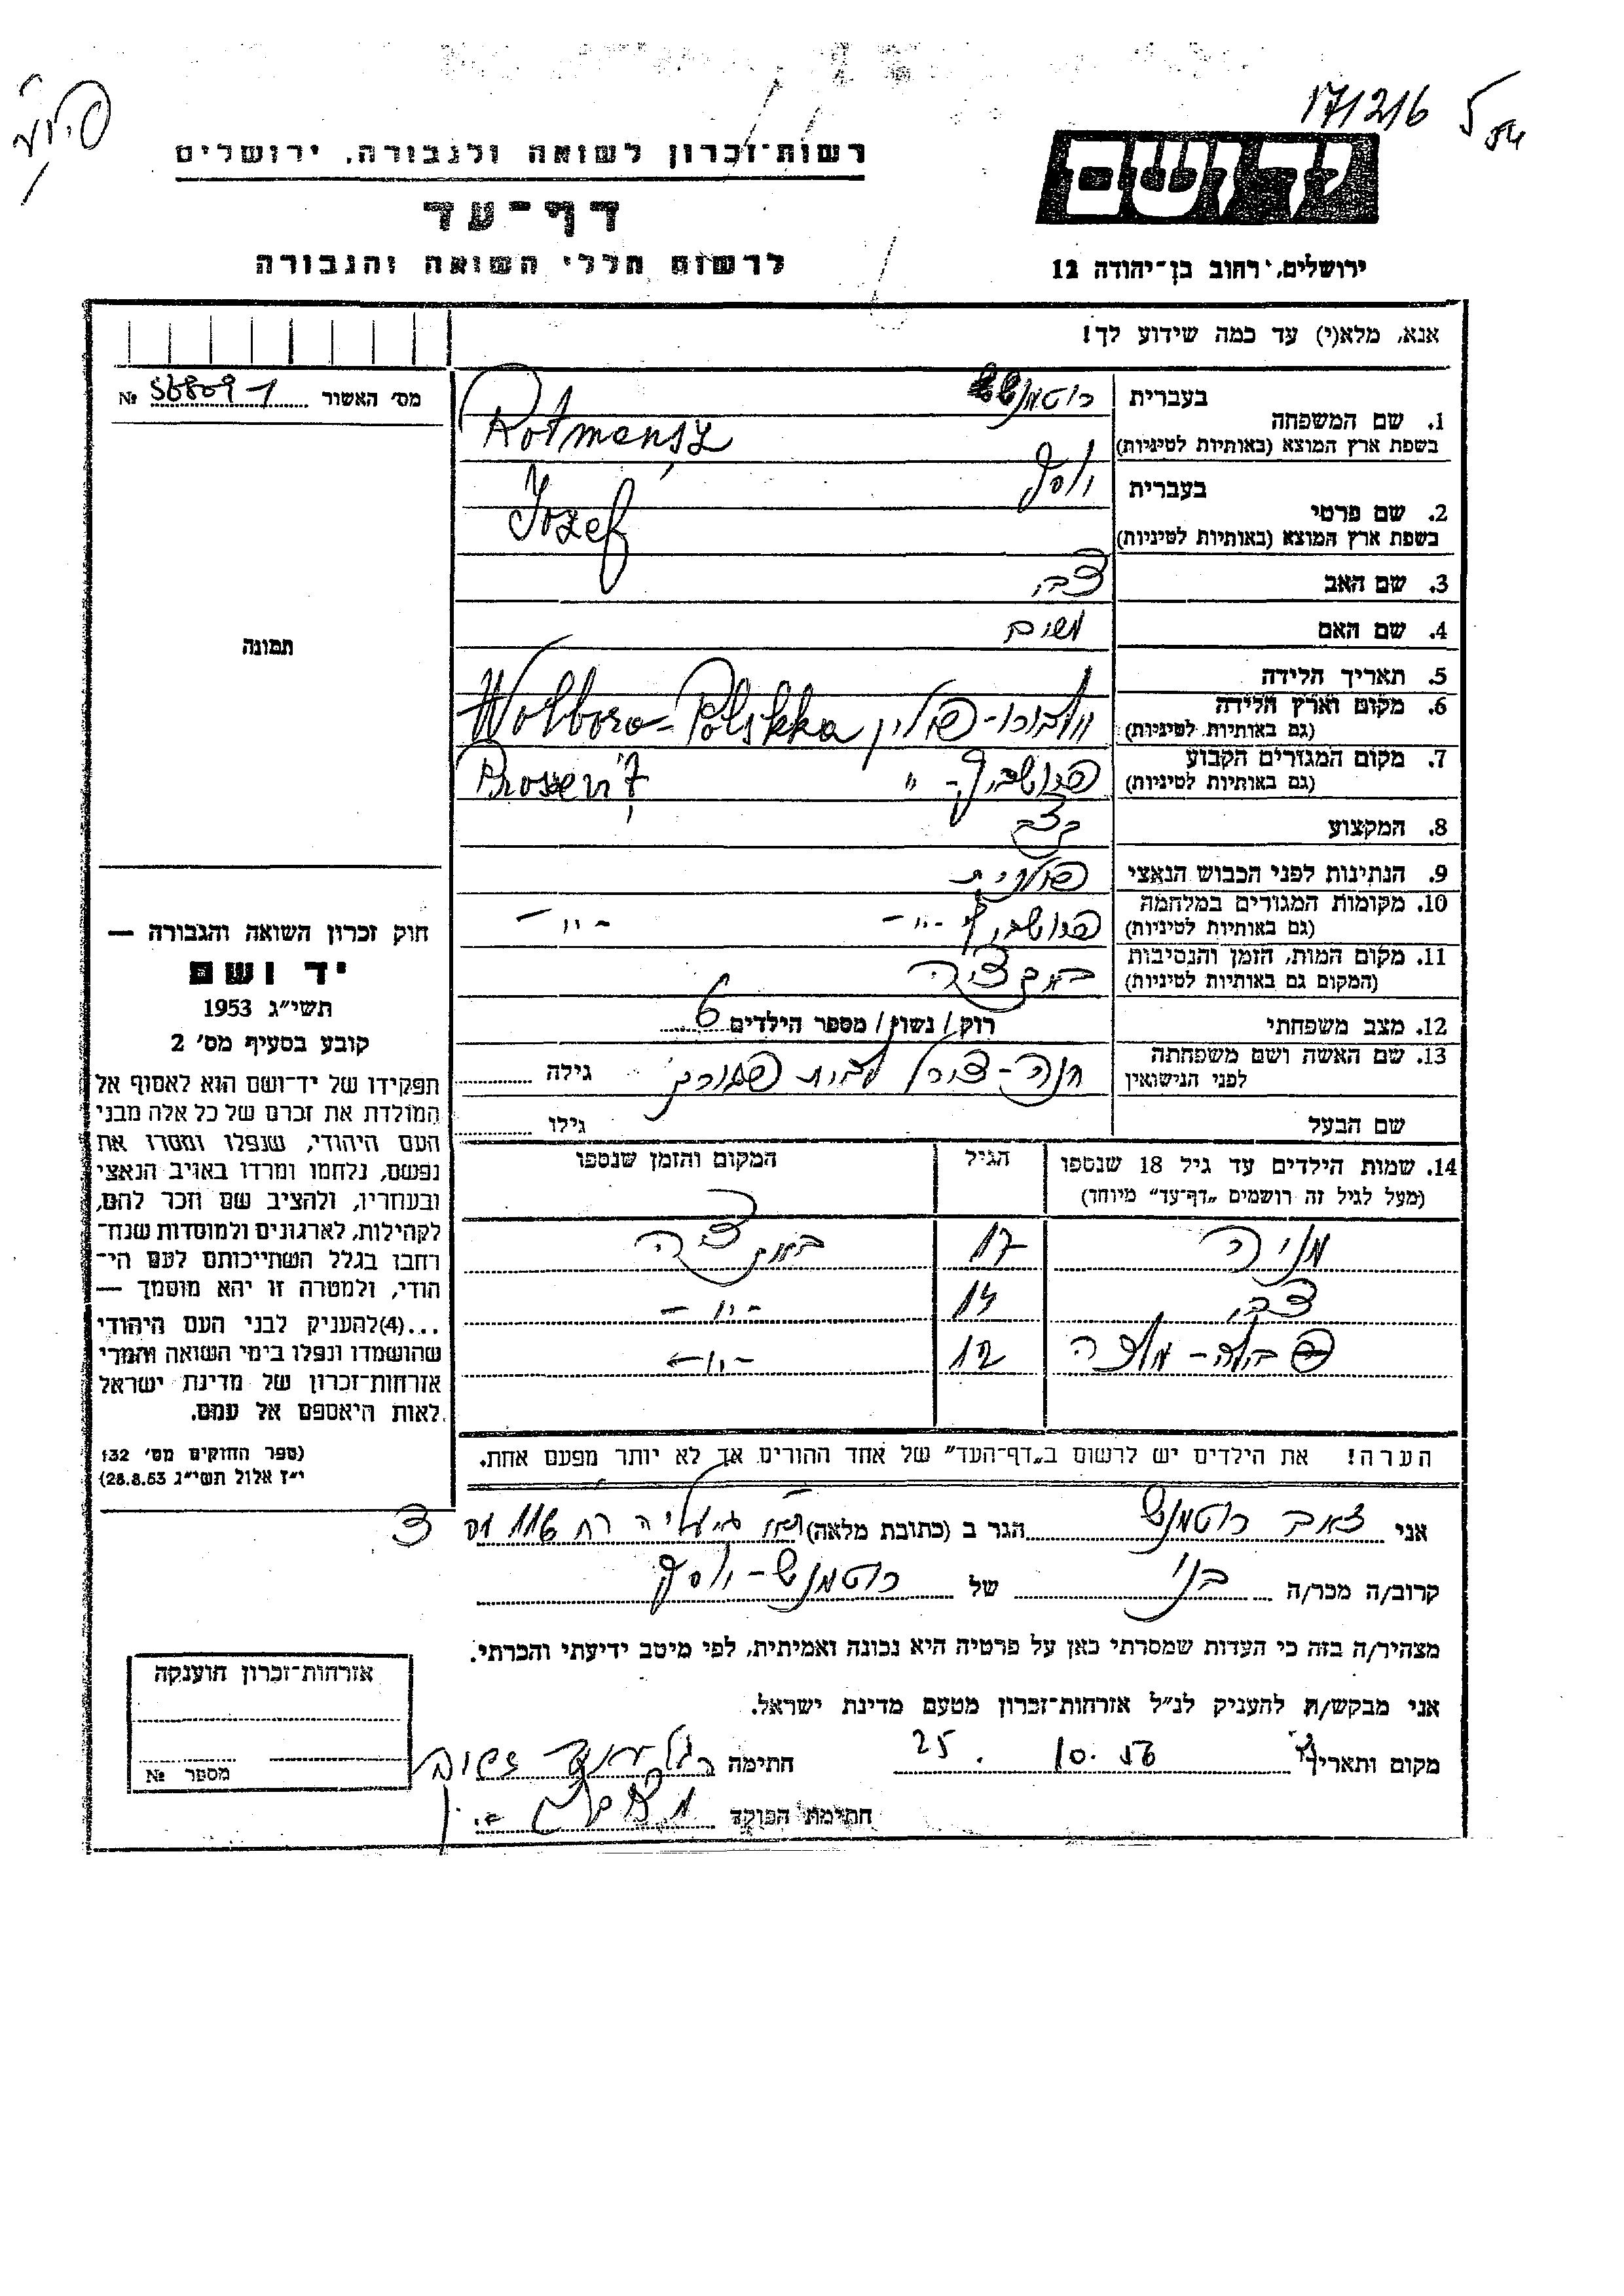 171216
רשות-זכרון לשואה ולגבורה, ירושלים
יד ושם
דף-עד
לרשום חללי השואה והגבורה
ירושלים, רחוב בן-יהודה 12
אנא, מלא(י) עד כמה שידוע לך!
מס' האשור № 56809
1. שם המשפחה
בעברית
רוטמנש
בשפת ארץ המוצא (באותיות לטיניות)
Rotmensz
2. שם פרטי
בעברית
יוסף
בשפת ארץ המוצא (באותיות לטיניות)
Jozef
3. שם האב
צבי
4. שם האם
מרים
5. תאריך הלידה
6. מקום וארץ הלידה
(גם באותיות לטיניות)
וולבורו-פולין Wolboro-Polskka
7. מקום המגורים הקבוע
(גם באותיות לטיניות)
8. המקצוע
קצב
9. הנתינות לפני הכבוש הנאצי
פולנית
10. מקומות המגורים במלחמה
(גם באותיות לטיניות)
-"- -"-
11. מקום המות, הזמן והנסיבות
(המקום גם באותיות לטיניות)
12. מצב משפחתי
רוק / נשוי / מספר הילדים 6
13. שם האשה ושם משפחתה
לפני הנישואין
חנה- לבית גילה
שם הבעל גילו
14. שמות הילדים עד גיל 18 שנספו
(מעל לגיל זה רושמים "דף-עד" מיוחד)
הגיל
המקום והזמן שנספו
מניה 17
צבי 14 -"-
12 -"-
הערה! את הילדים יש לרשום ב"דף-העד" של אחד ההורים אך לא יותר מפעם אחת.
תמונה
חוק זכרון השואה והגבורה —
יד ושם
תשי"ג 1953
קובע בסעיף מס' 2
תפקידו של יד-ושם הוא לאסוף אל
המולדת את זכרם של כל אלה מבני
העם היהודי, שנפלו ומסרו את
נפשם, נלחמו ומרדו באויב הנאצי
ובעוזריו, ולהציב שם וזכר להם,
לקהילות, לארגונים ולמוסדות שנח-
רבו בגלל השתייכותם לעם הי-
הודי, ולמטרה זו יהא מוסמך —
...(4)להעניק לבני העם היהודי
שהושמדו ונפלו בימי השואה והמרי
אזרחות-זכרון של מדינת ישראל
לאות היאספם אל עמם.
(ספר החוקים מס' 132
י"ז אלול תשי"ג 28.8.53)
אני זאב רוטמנש הגר ב (כתובת מלאה) רח 116
קרוב/ה מכר/ה בנו של רוטמנש-יוסף
מצהיר/ה בזה כי העדות שמסרתי כאן על פרטיה היא נכונה ואמיתית, לפי מיטב ידיעתי והכרתי.
אני מבקש/ת להעניק לנ"ל אזרחות-זכרון מטעם מדינת ישראל.
מקום ותאריך 25. 10. 56 חתימה
חתימת הפוקד
אזרחות-זכרון הוענקה
מספר №